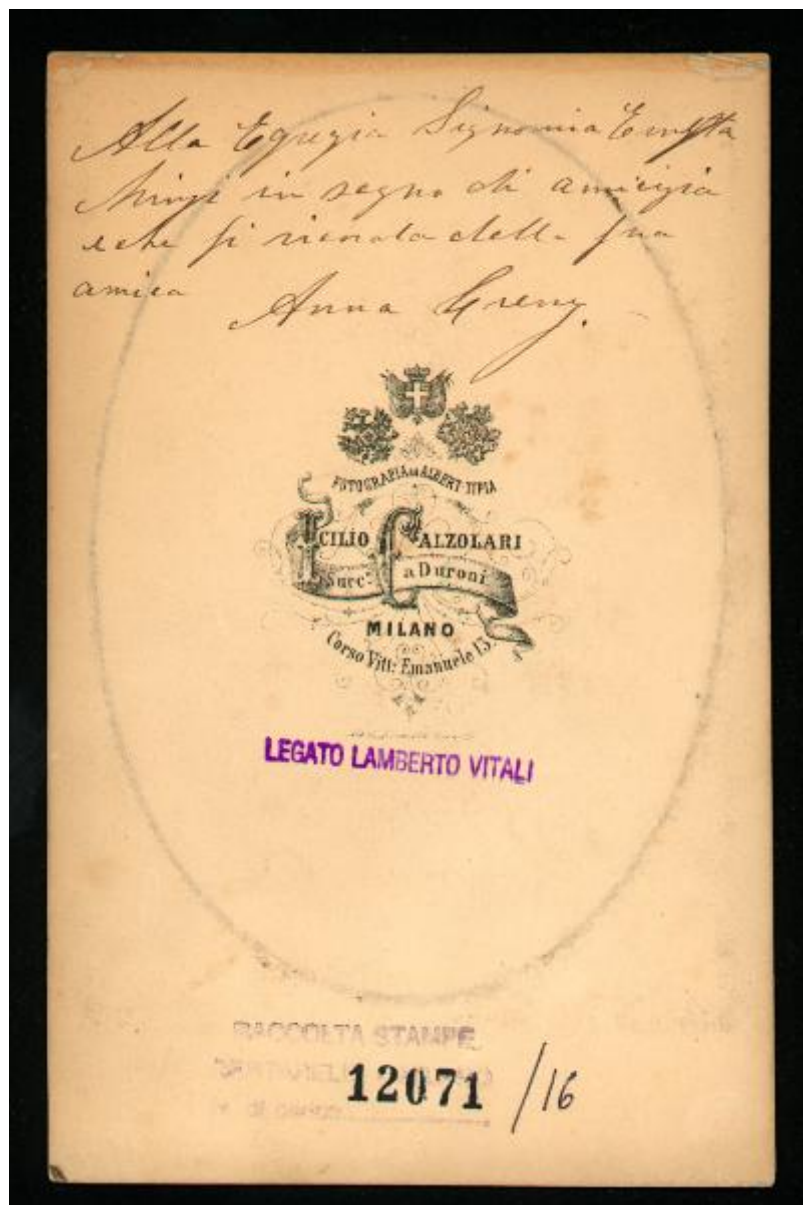 Alla Egregia Signorina
in segno di amicizia
e che si ricorda della sua
amica Anna
FOTOGRAFIA ED ALBERT-TIPIA
ICILIO CALZOLARI
Succ.e a Duroni
MILANO
Corso Vitt: Emanuele 13.
LEGATO LAMBERTO VITALI
RACCOLTA STAMPE
12071 /16